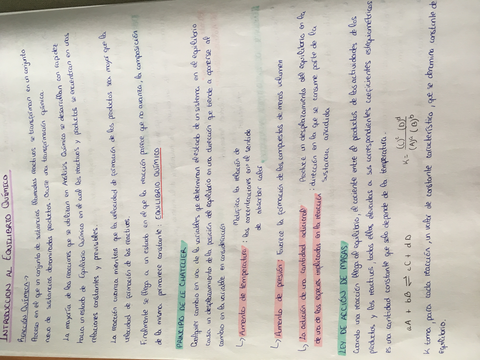 INTRODUCCIÓN AL EQUILIBRIO QUÍMICO
Reacción Química:
Proceso en el que un conjunto de sustancias llamadas reactivos se transforman en un conjunto
nuevo de sustancias denominadas productos. Ocurre una transformación química.
La mayoría de las reacciones que se utilizan en Análisis Químico se desarrollan con rapidez
hacia un estado de Equilibrio Químico en el cuál los reactivos y productos se encuentran en unas
relaciones constantes y previsibles.
La reacción avanza mientras que la velocidad de formación de los productos sea mayor que la
velocidad de formación de los reactivos.
Finalmente se llega a un estado en el que la reacción parece que no avanza, la composición
de la misma permanece constante: EQUILIBRIO QUÍMICO
PRINCIPIO DE LE CHATELIER
Cualquier cambio en una de las variables que determinan el estado de un sistema en el equilibrio
causa un desplazamiento de la posición del equilibrio en una dirección que tiende a oponerse al
cambio en la variable en consideración
↳ Aumento de temperatura: Modifica la relación de
las concentraciones en el sentido
de absorber calor.
↳ Aumento de presión: Favorece la formación de los compuestos de menos volumen
↳ La adición de una cantidad adicional Produce un desplazamiento del equilibrio en la
de una de las especies implicadas en la reacción: dirección en la que se consume parte de la
sustancia añadida
LEY DE ACCIÓN DE MASAS
Cuando una reacción llega al equilibrio, el cociente entre el producto de las actividades de los
productos y los reactivos, todas ellas elevadas a sus correspondientes coeficientes estequiométricos
es una cantidad constante que solo depende de la temperatura.
aA + bB ⇌ cC + dD K = (C)^c (D)^d / (A)^a (B)^b
K toma para cada reacción, un valor de constante característica, que se denomina constante de
equilibrio.